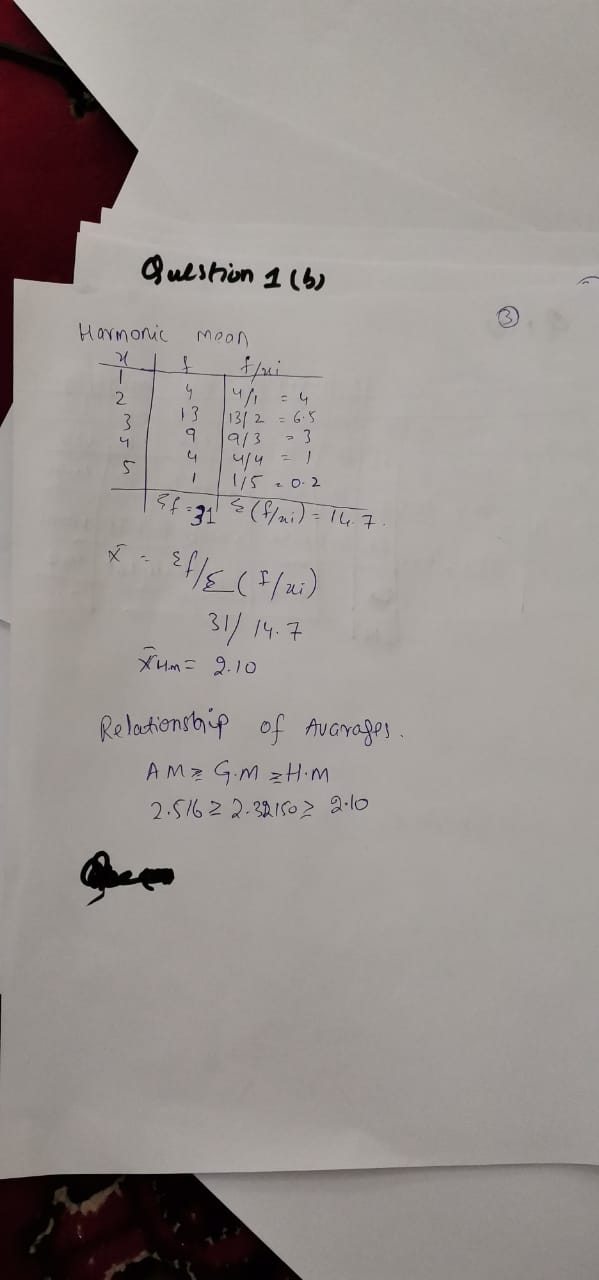 Question 1 (b)
3
Harmonic mean
x f f/xi
1 4 4/1 = 4
2 13 13/2 = 6.5
3 9 9/3 = 3
4 4 4/4 = 1
5 1 1/5 = 0.2
Σf = 31 Σ(f/xi) = 14.7
x̄ = Σf/Σ(f/xi)
31/14.7
x̄H.m = 2.10
Relationship of Avarages.
AM ≥ G.M ≥ H.M
2.516 ≥ 2.32150 ≥ 2.10